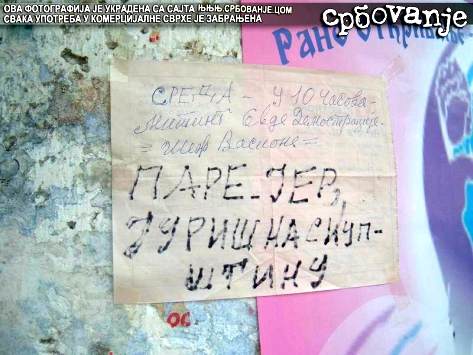 ОВА ФОТОГРАФИЈА ЈЕ УКРАДЕНА СА САЈТА ЊЊЊ.СРБОВАЊЕ.ЦОМ
СВАКА УПОТРЕБА У КОМЕРЦИЈАЛНЕ СВРХЕ ЈЕ ЗАБРАЊЕНА
србоvanje
Рано
СРЕДА - У 10 часова-
Митинг Овде Демострације-
= Шиф Васионе=
ПАРЕ-ЈЕР,
ЈУРИШ НА СКУП-
ШТИНУ